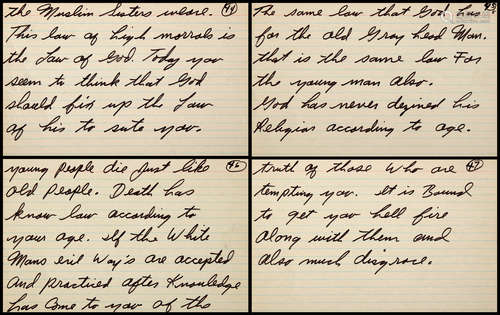 the Muslim Sisters weare. 44
This law of high morrals is
the Law of God. Today you
seem to think that God
should fix up the Law
of his to sute you.
The same law that God has 45
for the old Gray head Man.
that is the same law For
the young man also.
God has never dezined his
Religion according to age.
young people die Just like 46
old People. Death has
know law according to
your age. If the White
Mans evil Way's are accepted
and practiced after Knowledge
has Come to you of the
truth of those Who are 47
tempting you. it is Bound
to get you hell fire
along with them and
also much disgrace.